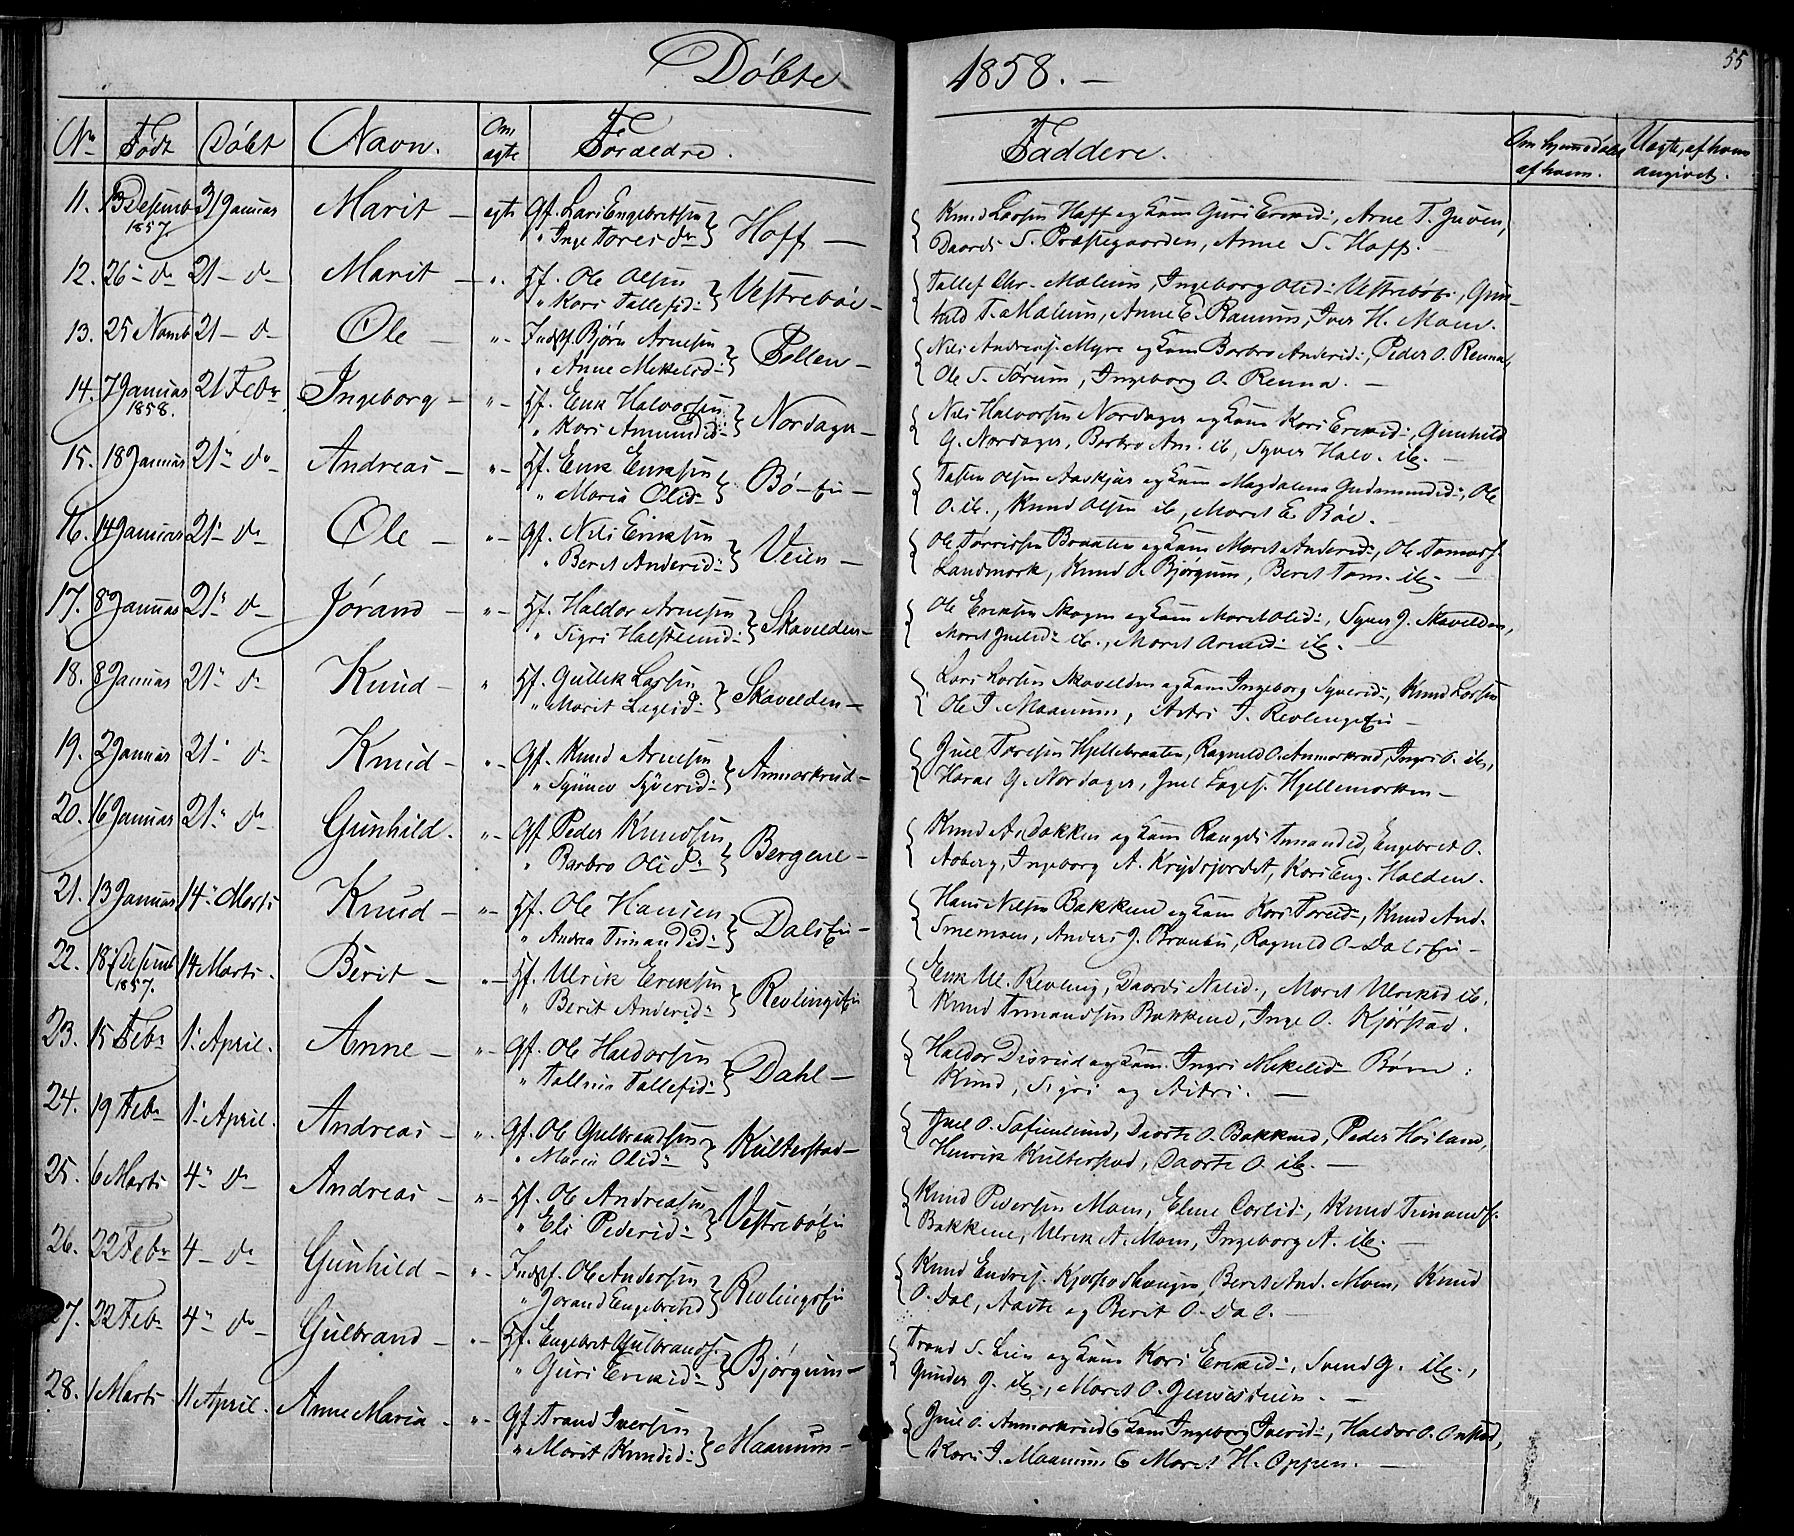 Döbte 1858. —
55
No Födt Döbt Navn. Om ægte Forældre. Faddere. Om hjemmedöbt af hvem. Uægte, af hvem angivet.
11. 13 Desemb 1857. 31 Januar Marit — ægte Gf. Lars Engebretsen
" Inge Tores dr } Hoff —
{ Knud Larsen Hoff og Kone Guri Eriksd:, Arne T. Juven,
Daardi S. Præstegaarden, Anne S. Hoff.
12. 26 - do 21 - do Marit — "- Hf. Ole Olsen
" Kari Tollefsd: } Vestreböe —
{ Tollef Chr. Mælum, Ingeborg Olsd: Vestrebö, Gun-
hild T. Mælum, Anne E. Ranum, Iver H. Moen.
13. 25 Novemb 21 - do Ole — "- Indst. Björn Arnesen
" Anne Mekelsd: } Pollen —
{ Nils Andreas. Myre og Kone Barbro Andersd:, Peder O. Renna,
Ole S. Sörum, Ingeborg O. Renna. —
14. 7 Januar 1858. 21 Febr Ingeborg — "- Hf. Erik Halvorsen
" Kari Amundsd: } Nordager —
{ Nils Halvorsen Nordager og Kone Kari Eriksd:, Gunhild
G. Nordager, Barbro Am. ib, Syver Halv. ib. —
15. 18 Januar 21 - do Andreas — "- Hf. Erik Eriksen
" Maria Olsd: } Bö-Ei —
{ Tosten Olsen Aaskjær og Kone Magdalena Gudmundsd:, Ole
O. ib., Knud Olsen ib, Marit E. Böe. —
16. 14 Januar 21 - do Ole — "- Gf. Nils Eriksen
" Berit Andersd: } Veien —
{ Ole Torrissen Braaten og Kone Marit Andersd:, Ole Tomas.
Landmark, Knud O. Björgum, Berit Tom. ib. —
17. 8 Januar 21 - do Jörand — "- Hf. Haldor Arnesen
" Sigri Halsteinsd: } Skavelden —
{ Ole Eriksen Skogen og Kone Marit Olsd:, Syver J. Skavelden,
Marit Juelsd: ib., Marit Arnesd: ib. —
18. 8 Januar 21 - do Knud — " Hf. Gullek Larsen
" Marit Lagesd: } Skavelden —
{ Lars Larsen Skavelden og Kone Ingeborg Syversd:, Knud Larsen
Ole I. Maanum, Astri I. RevlingsEi —
19. 2 Januar 21 - do Knud — "- Gf. Knud Arnesen
" Synnev Syversd: } Anmarkrud —
{ Juel Toresen Hjellebraaten, Ragnild O. Anmarkrud, Ingri O. ib,
Haral G. Nordager, Juel Lages. Hjellemarken —
20. 16 Januar 21 - do Gunhild. "- Gf. Peder Knudsen
" Barbro Olsd: } Bergene —
{ Knud A. Dokken og Kone Rangdi Tmandsd, Engebret O.
Aaberg, Ingeborg A. Krydsjordet, Kari Eng. Halden.
21. 13 Januar 14 - Marts Knud — "- Hf. Ole Hansen
" Andrea Timandsd: } DalsEi —
{ Hans Nilsen Bakkene og Kone Kari Toresd:, Knud And.
Smemoen, Anders J. Braabu, Ragnild O. DalsEi —
22. 18 Desemb 1857. 14 Marts. Berit — "- Hf. Ulrik Eriksen
" Berit Andersd: } RevlingsEi
{ Erik Ul. Revling, Daardi Nilsd., Marit Ulriksd ib.
Knud Timandsen Bakkene, Inge O. Kjörstad.
23. 15 Febr 1 - April. Anne — "- Gf. Ole Haldorsen
" Tolline Tollefsd: } Dahl —
{ Haldor Disrud og Kone. Ingri Mekelsd: Börn:
Knud, Sigri og Astri. —
24. 19 Febr 1 - April. Andreas — "- Gf. Ole Gulbrandsen
" Maria Olsd: } Kulterstad —
{ Juel O. Tofienlund, Daarte O. Bakkene, Peder Höiland,
Henrik Kulterstad, Daarte O. ib. —
25. 6 Marts 4 - do Andreas — "- Hf. Ole Andreasen
" Eli Pedersd: } VestreböEi
{ Knud Pedersen Moen, Eline Carlsd:, Knud Timands.
Bakkene, Ulrik A. Moen, Ingeborg A. ib. —
26. 22 Febr 4 - do Gunhild — "- Indst. Ole Andersen
" Jorand Engebretsd } RevlingsEi
{ Knud Endres. Kjörstadhaugen, Berit And. Moen, Knud
O. Dal, Aaste og Berit O. Dal. —
27. 22 Febr 4 - do Gulbrand — "- Hf. Engebret Gulbrands.
" Guri Eriksd: } Björgum —
{ Trond S. Lien og Kone Kari Eriksd:, Svend G. ib.,
Gunder G. ib., Marit O. —
28. 1 Marts 11 April. Anne Maria — "- Gf. Trond Iversen
" Marit Knudsd: } Maanum —
{ Juel O. Anmarkrud & Kone Ingeborg Iversd:, Haldor O. Onstad,
Kari I. Maanum & Marit H. Oppen. —